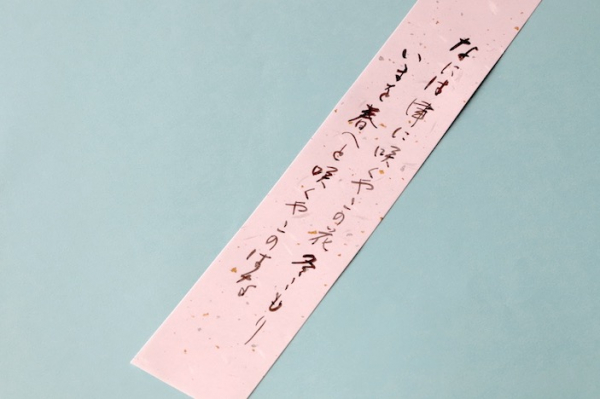 なには津に咲くやこの花冬ごもり
いまを春べと咲くやこのはな